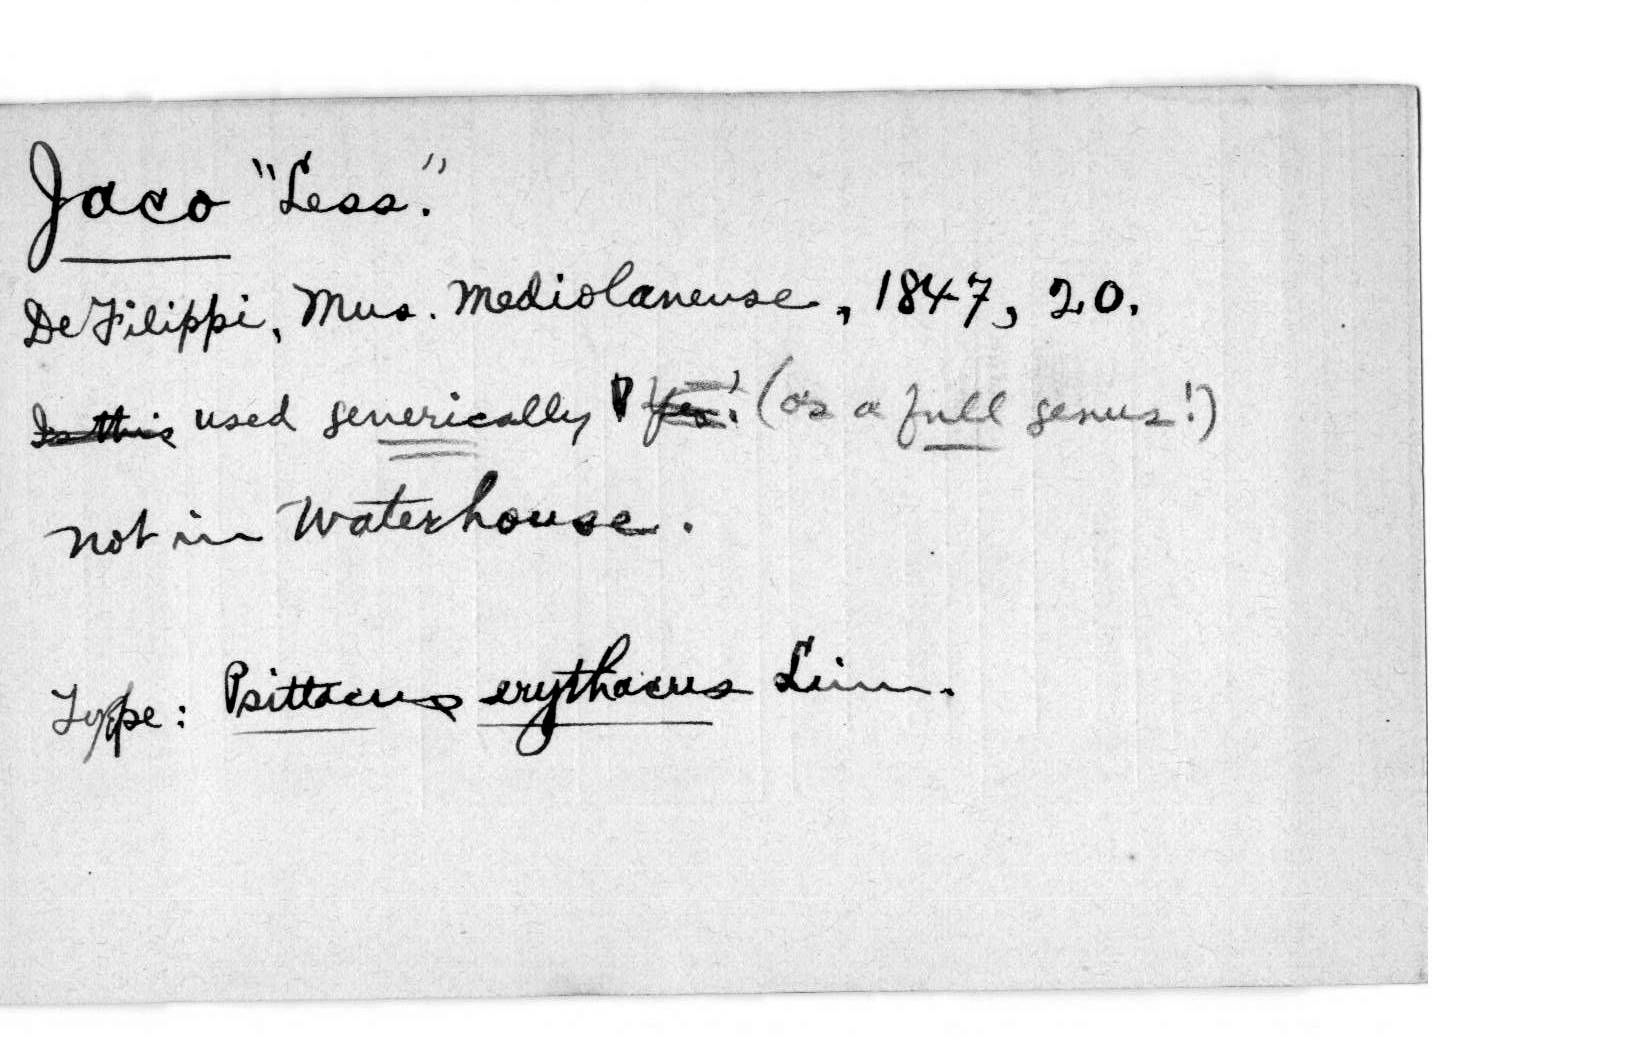 Jaco "Less."
De Filippi, Mus. Mediolanense, 1847, 20.
Is this used generically Yes! (as a full genus!)
not in Waterhouse.
Type: Psittacus erythacus Linn.